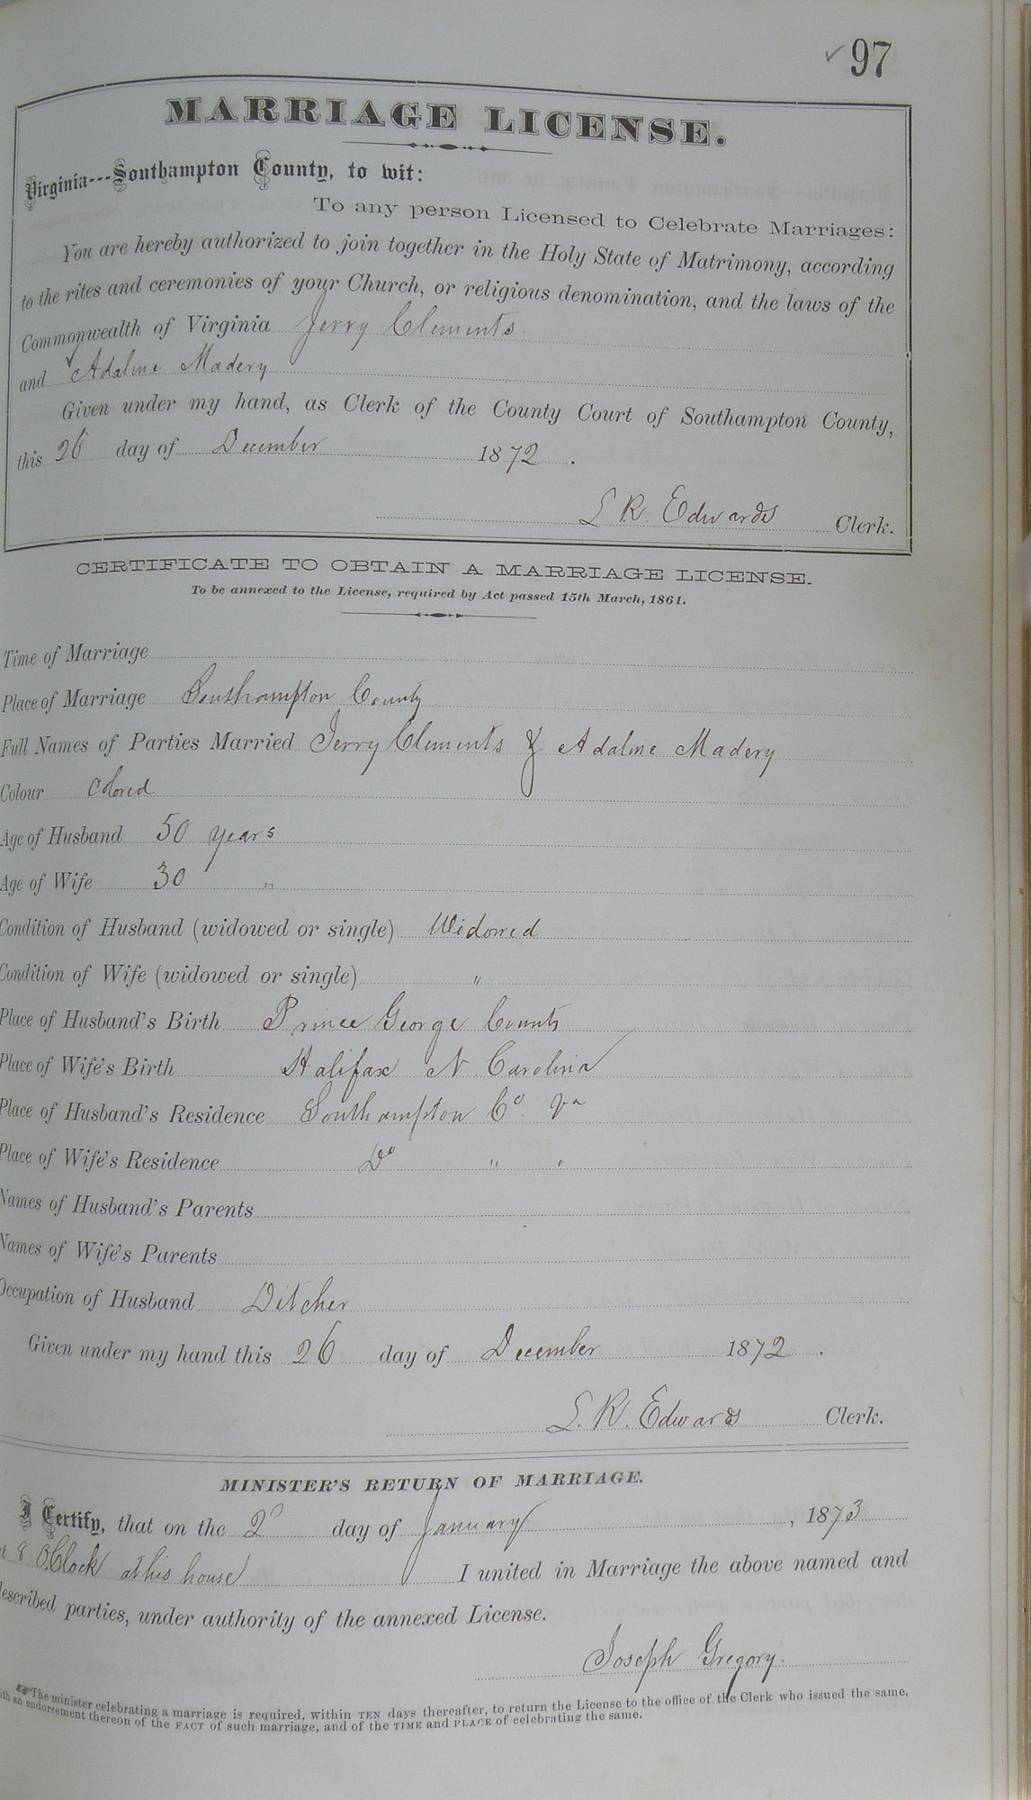 ✓97
MARRIAGE LICENSE.
Virginia---Southampton County, to wit:
To any person Licensed to Celebrate Marriages:
You are hereby authorized to join together in the Holy State of Matrimony, according
to the rites and ceremonies of your Church, or religious denomination, and the laws of the
Commonwealth of Virginia Jerry Clements.
and Adaline Madery
Given under my hand, as Clerk of the County Court of Southampton County,
this 26 day of December 1872.
L R. Edwards Clerk.
CERTIFICATE TO OBTAIN A MARRIAGE LICENSE.
To be annexed to the License, required by Act passed 15th March, 1861.
Time of Marriage
Place of Marriage Southampton County
Full Names of Parties Married Jerry Clements & Adaline Madery
Colour Colored
Age of Husband 50 years
Age of Wife 30 "
Condition of Husband (widowed or single) Widowed
Condition of Wife (widowed or single) "
Place of Husband's Birth Prince George County
Place of Wife's Birth Halifax N. Carolina
Place of Husband's Residence Southampton Co. Va
Place of Wife's Residence Do " "
Names of Husband's Parents
Names of Wife's Parents
Occupation of Husband Ditcher
Given under my hand this 26 day of December 1872.
L. R. Edwards Clerk.
MINISTER'S RETURN OF MARRIAGE.
I Certify, that on the 2d day of January, 1873
at 8 O.Clock at his house I united in Marriage the above named and
described parties, under authority of the annexed License.
Joseph Gregory.
The minister celebrating a marriage is required, within TEN days thereafter, to return the License to the office of the Clerk who issued the same,
with an endorsement thereon of the FACT of such marriage, and of the TIME and PLACE of celebrating the same.